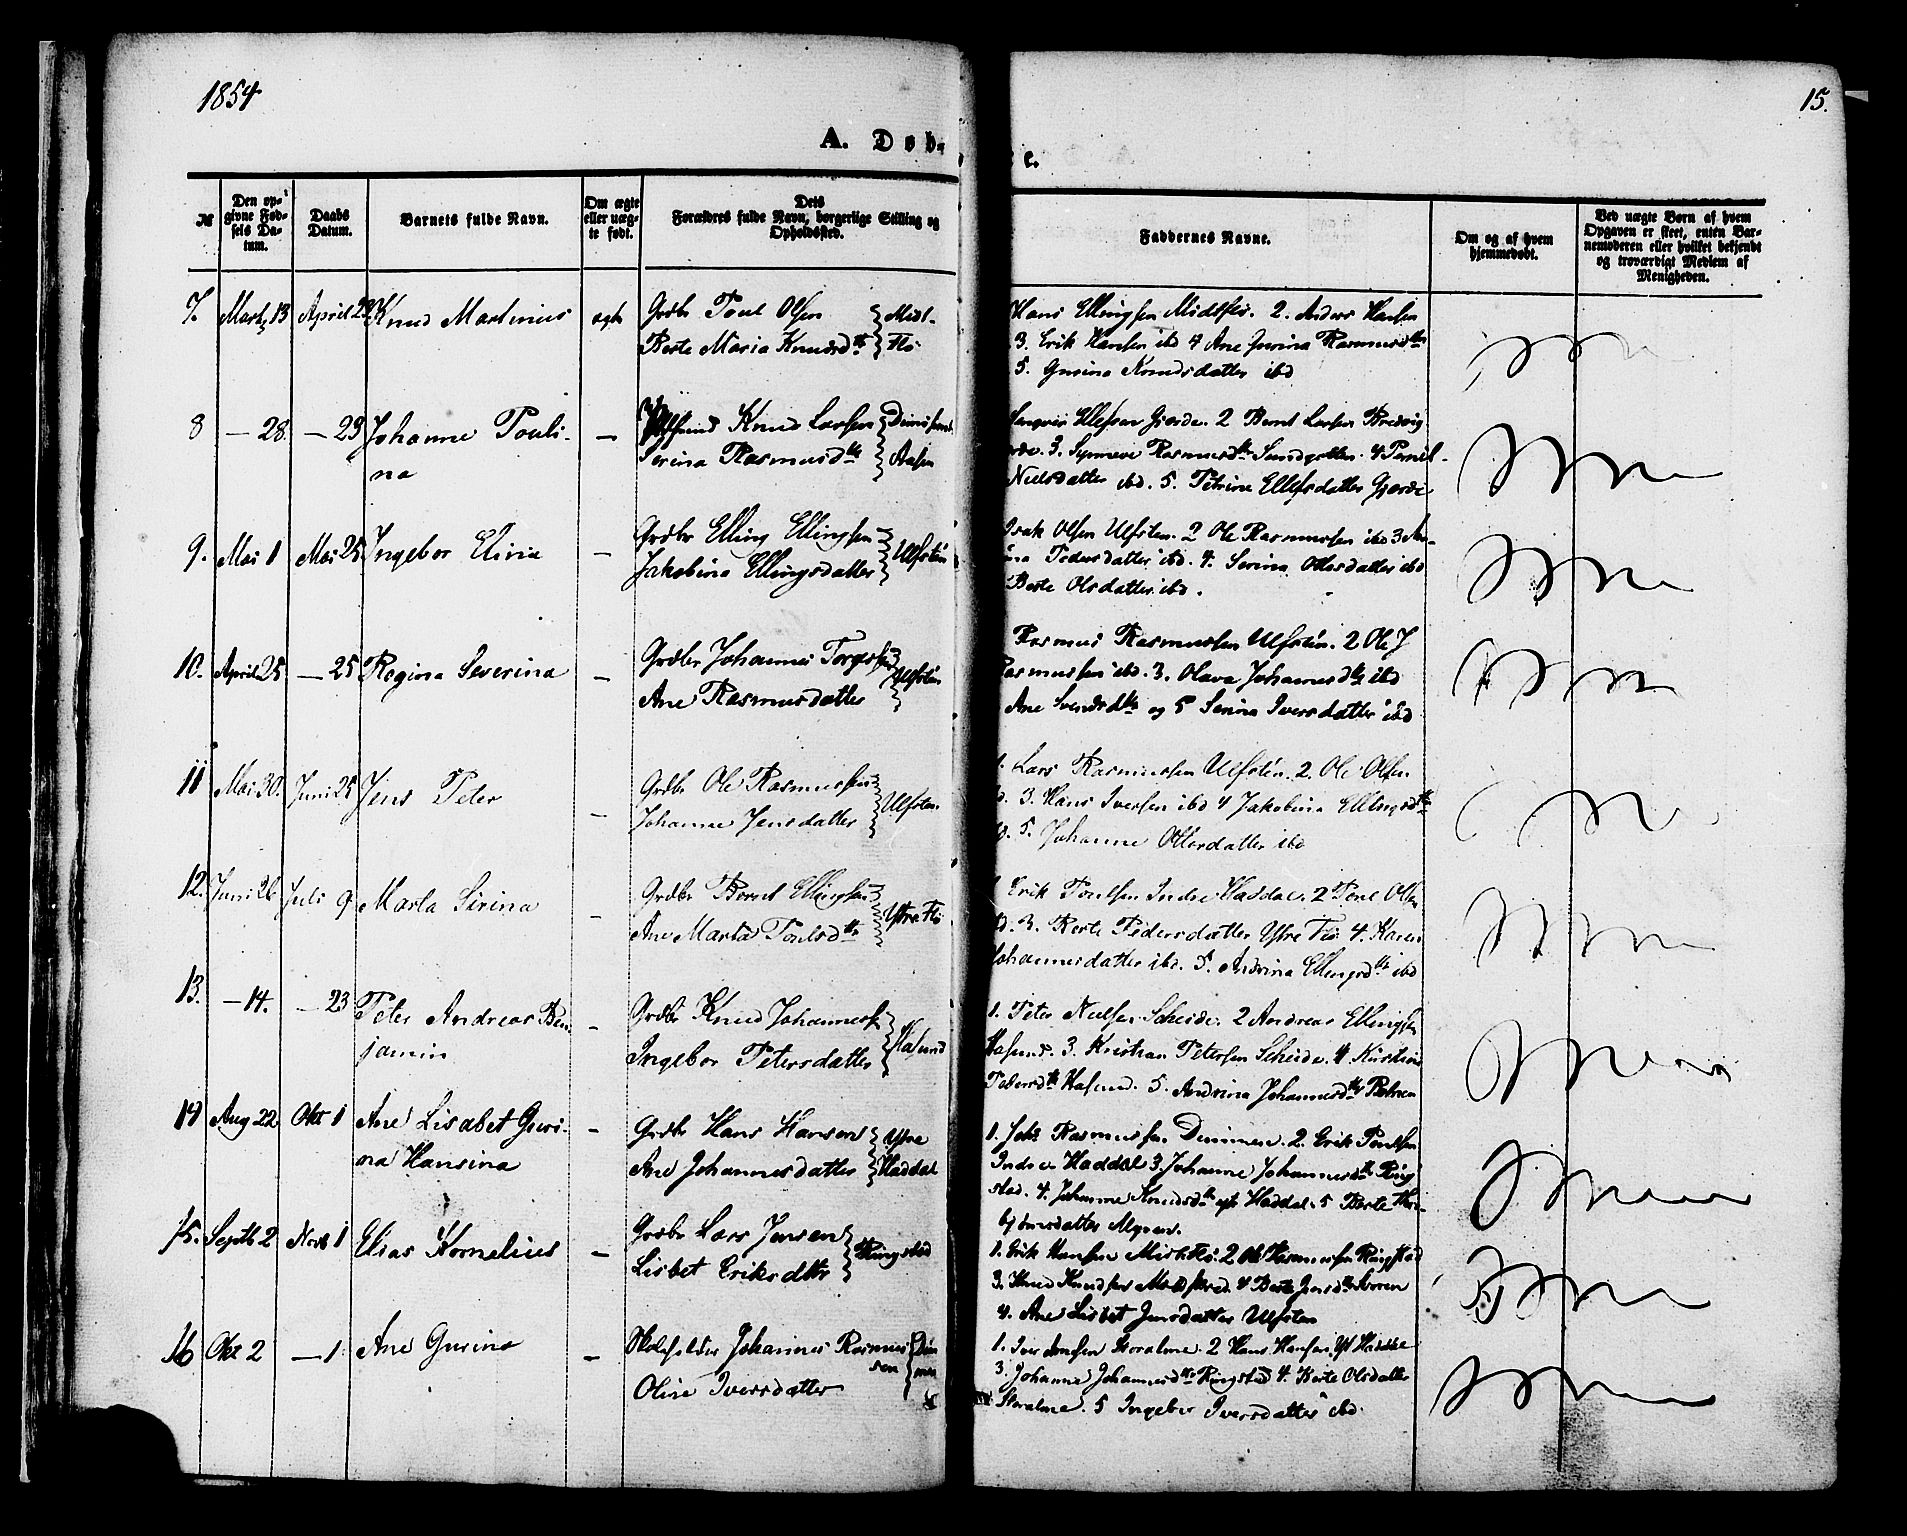 1854
15.
A. Døb-
e.
№
Den op-
givne Fød-
sels Da-
tum.
Daabs
Datum.
Barnets fulde Navn.
Om ægte
eller uæg-
te født.
Dets
Forældres fulde Navn, borgerlige Stilling og
Opholdssted.
Faddernes Navne.
Om og af hvem
hjemmedøbt.
Ved uægte Børn af hvem
Opgaven er skeet, enten Bar-
nemoderen eller hvilket bekjendt
og troværdigt Medlem af
Menigheden.
7. Marts 13 April 23 Knud Martinus ægte Grdbr Poul Olsen Midt-
Berte Maria Knudsdtr Flø
Hans Ellingsen Midtflø. 2. Anders Hansen
3. Erik Hansen ibd 4 Ane Gurina Rasmusdtr
5. Gurina Knudsdatter ibd
8 — 28. — 23 Johanne Pouli- — Knud Larsen
na Serina Rasmusdtr Aasen
Ellefsen Gjerde. 2 Bernt Larsen
3. Synneve Rasmusdtr 4 Pernel-
Nielsdatter ibd. 5. Petrine Ellefsdatter Gjerde
9. Mai 1 Mai 25 Ingebor Elina — Grdbr Elling Ellingsen Ulfsten
Jakobina Ellingsdatter
Isak Olsen Ulfsten. 2 Ole Rasmussen ibd 3 An-
Pedersdatter ibd. 4. Serina Ottersdatter ibd
Berte Olsdatter ibd.
10. April 25 — 25 Regina Severina — Grdbr Johannes Ulfsten
Ane Rasmusdatter
Rasmus Rasmussen Ulfsten. 2 Ole J
Rasmussen ibd. 3. Olava Johannesdtr ibd
Ane Svendsdtr og 5 Serina Iversdatter ibd
11 Mai 30. Juni 25 Jens Peter — Grdbr Ole Rasmussen Ulfsten
Johanne Jensdatter
1. Lars Rasmussen Ulfsten. 2. Ole Olsen
3. Hans Iversen ibd 4 Jakobina Ellingsdtr
5. Johanne Ottersdatter ibd
12. Juni 26 Juli 9 Marta Sirina — Grdbr Bernt Ellingsen Ytre Flø
Ane Marta Poulsdtr
Erik Poulsen Indre Haddal. 2 Poul Olsen
3. Berte Pedersdatter Ytre Flø 4. Karen
Johannesdatter ibd. 5. Andrina Ellingsdtr ibd
13. — 14. — 23 Peter Andreas Ben- — Grdbr Knud Johannessen Hasund
jamin Ingebor Petersdatter
1. Peter Nielsen Scheide. 2 Andreas Ellingsen
Hasund. 3. Kristian Petersen Scheide. 4
Pedersdtr Hasund. 5. Andrina Johannesdtr
14 Aug 22 Okt 1 Ane Lisabet Guri- — Grdbr Hans Hansen Ytre
na Hansina Ane Johannesdatter Haddal
1. Johs Rasmussen Dimmen. 2. Erik Poulsen
Indre Haddal 3. Johanne Johannesdtr Ring
stad. 4. Johanne Knudsdtr Haddal. 5 Berte Thor-
bjørnsdatter Myren.
15. Septb 2 Novb 1 Elias Kornelius — Grdbr Lars Jensen Ringstad
Lisbet Eriksdtr
1. Erik Hansen Midtflø. 2 Ole Rasmussen Ringstad
3. Knud Knudsen 4 Berte Jensdtr
4. Ane Lisbet Jensdatter Ulfsten
16 Okt 2 — 1 Ane Gurina — Skoleholder Johannes Rasmus Dim
sen men
Olise Iversdatter
1. Iver 2 Hans Hansen Yt Haddal
3. Johanne Johannesdtr Ringstad 4. Berte Olsdatter
5 Ingebor Iversdatter ibd.